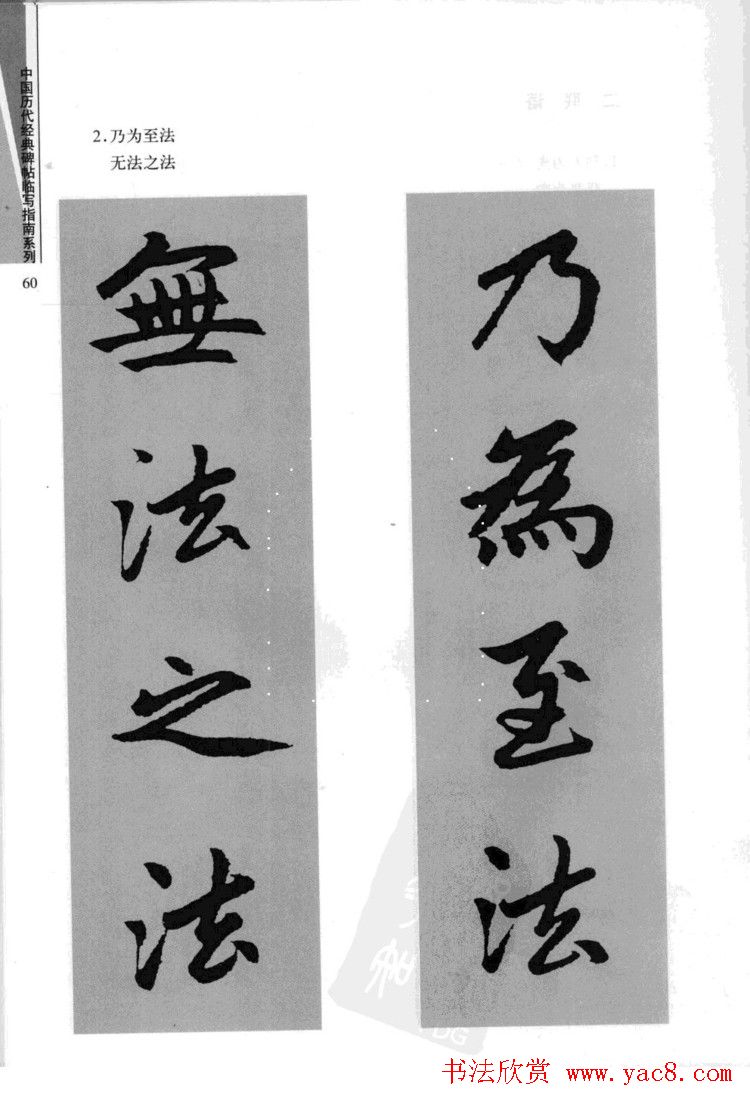 中国历代经典碑帖临写指南系列
60
2.乃为至法
无法之法
乃為至法
無法之法
书法欣赏 www.yac8.com